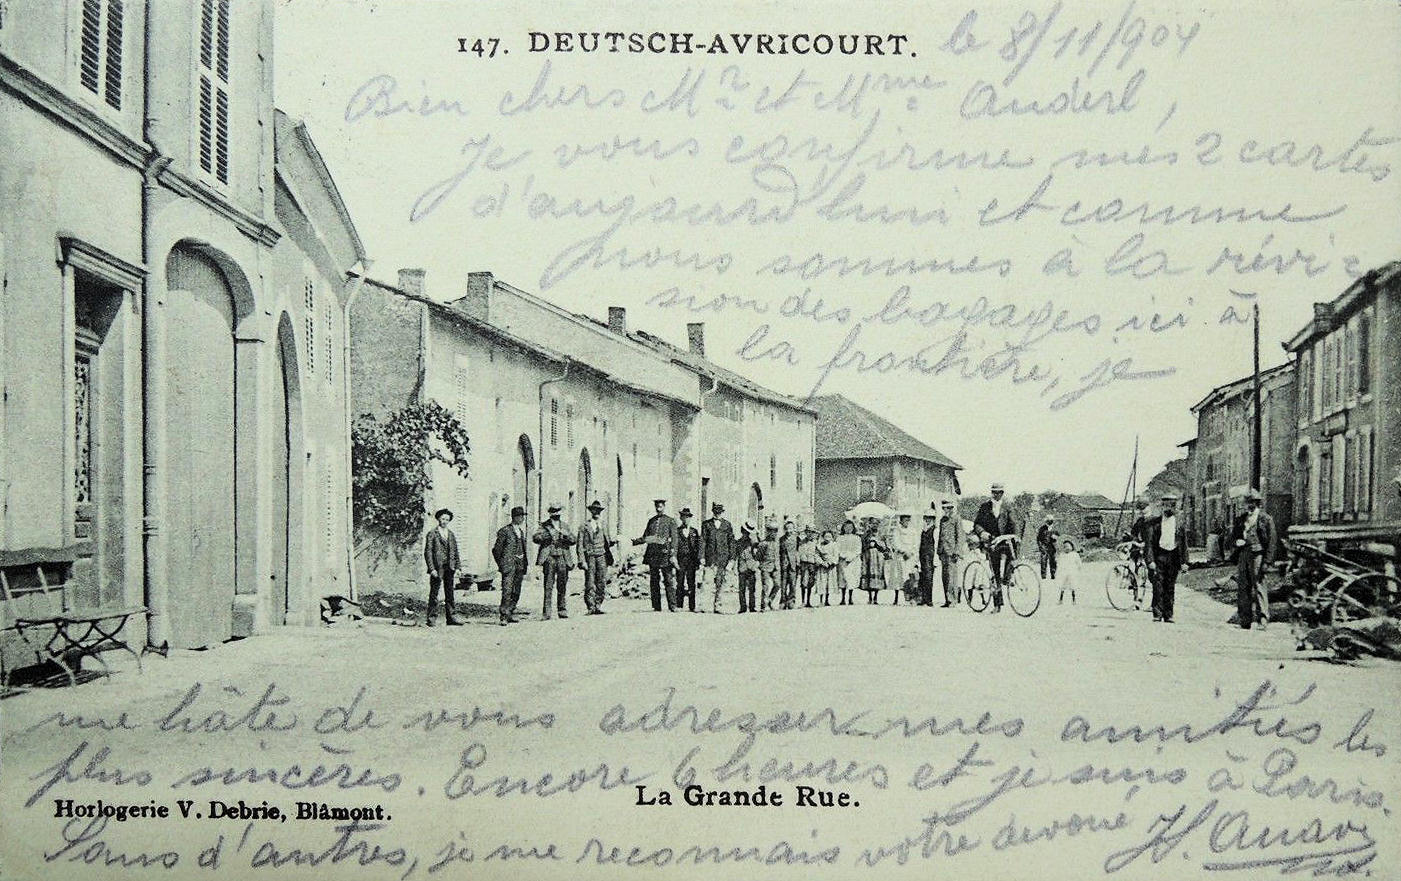 147. DEUTSCH-AVRICOURT. le 8/11/904
Bien chers Mr et Mme Anderl,
Je vous confirme mes 2 cartes
d'aujourd'hui et comme
nous sommes à la révi-
sion des bagages ici à
la frontière, je
me hâte de vous adresser mes amitiés les
plus sincères. Encore 6 heures et je suis à Paris.
La Grande Rue.
Horlogerie V. Debrie, Blâmont.
Sans d'autres, je me reconnais votre dévoué H.